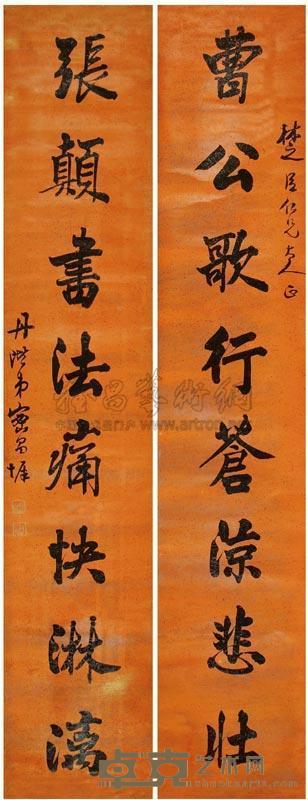 楚臣仁兄大人正
曹公歌行蒼涼悲壯
張顛書法痛快淋漓
丹階弟密昌墀
雅昌藝術網
www.artron.net
卓克艺术网